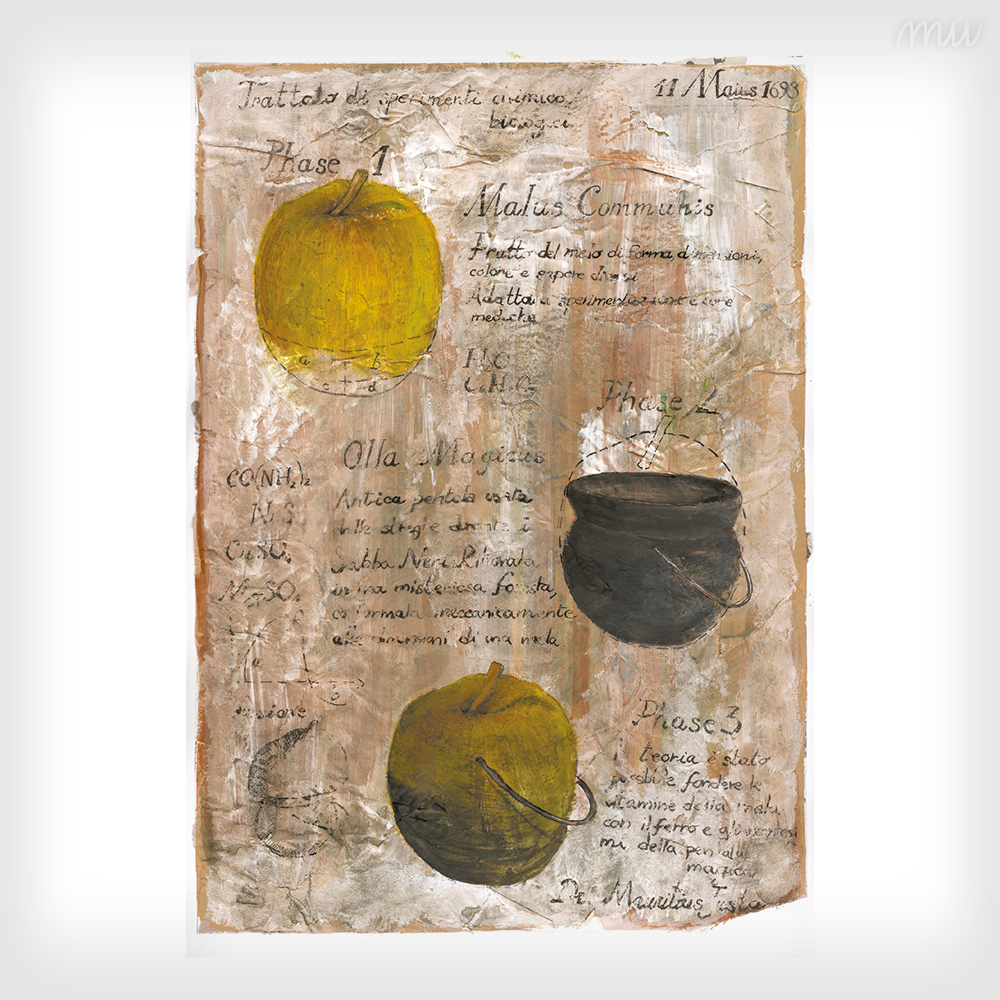 mw
Trattato di sperimenti chimico/
biologici
11 Maius 1693
Phase 1
Malus Communis
Frutto del melo di forma, dimensioni,
colore e sapore diversi
Adatto a sperimentazioni e cure
mediche
a b
c d
H₂O
Phase 2
Olla Magicus
Antica pentola usata
dalle streghe durante i
Sabba Neri. Ritrovata
in una misteriosa foresta,
meccanicamente
alle dimensioni di una mela
CO(NH₂)₂
CuSO₄
a
b
fusione
Phase 3
teoria è stato
possibile fondere le
vitamine della mela
con il ferro e gli
mi della pentola
magica
Dr.